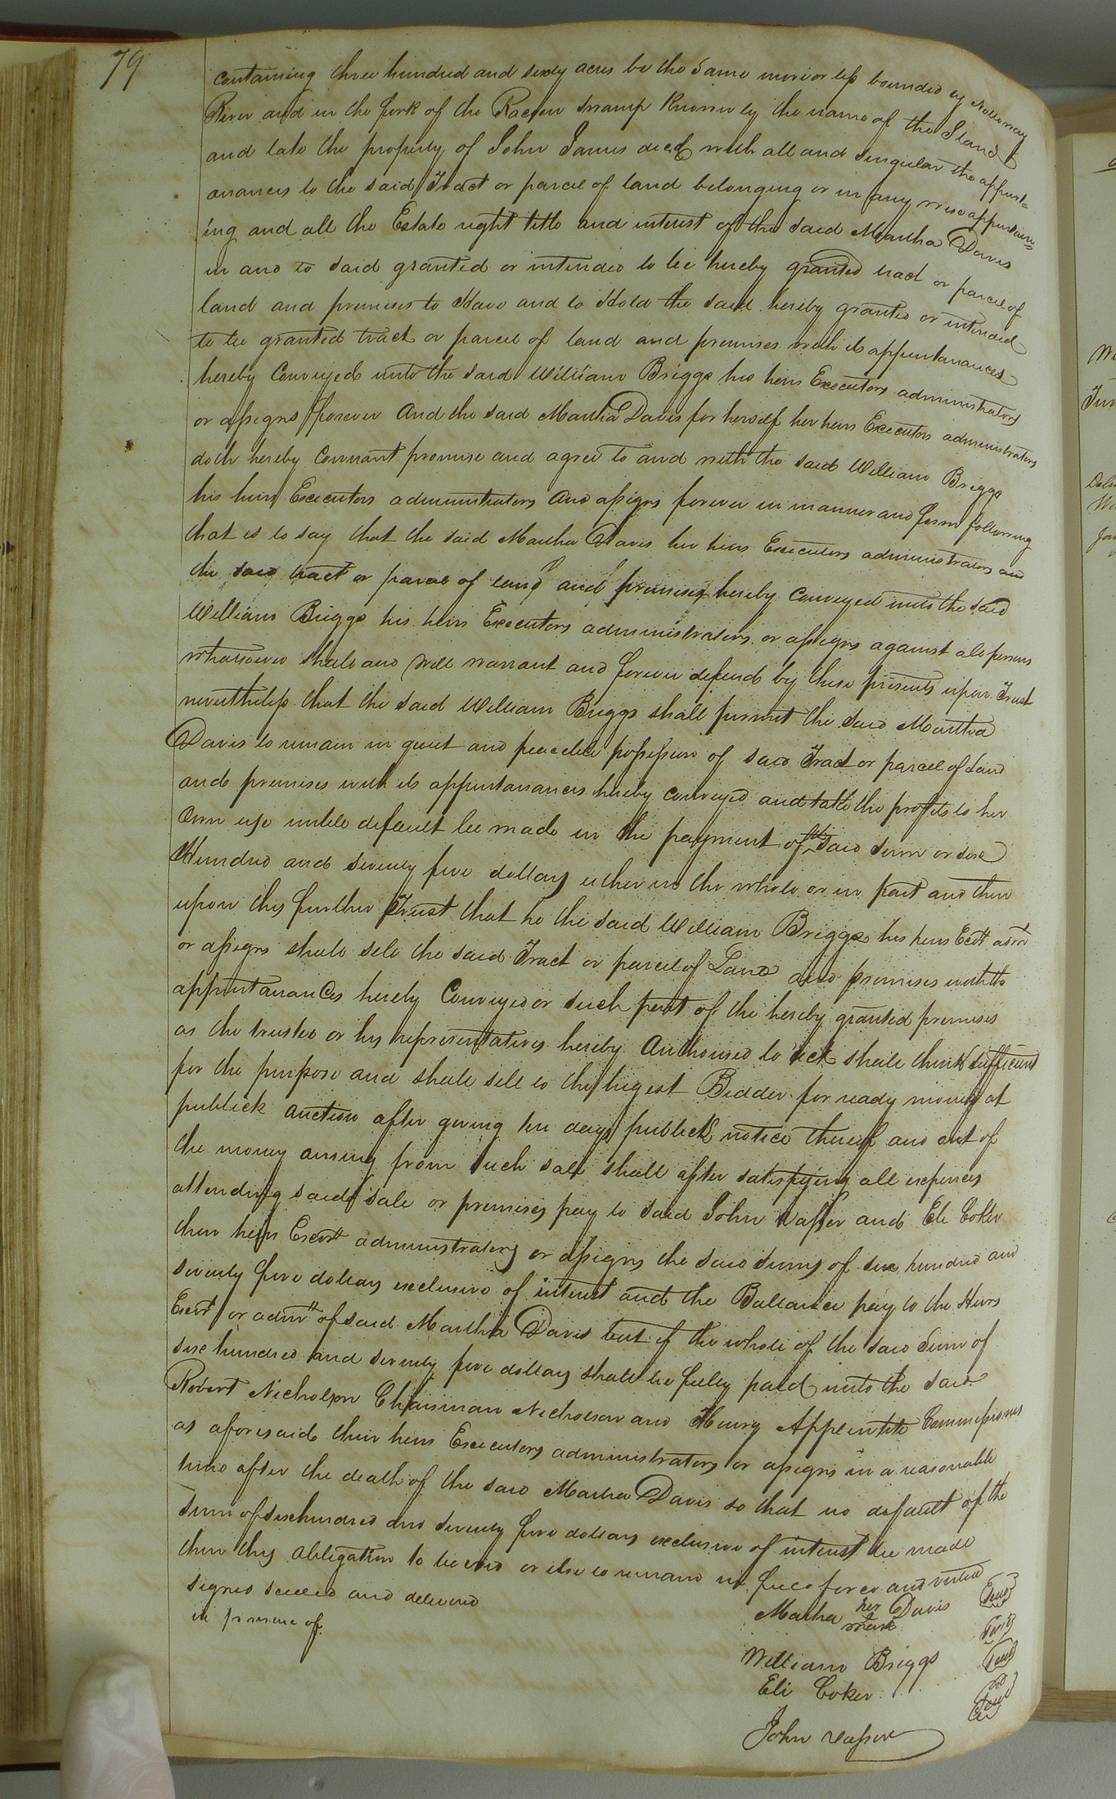 79
containing three hundred and sixty acres be the same more or less bounded by Nottoway
River and in the fork of the Racoon Swamp Known by the name of the Island
and late the property of John James decd with all and singular the appurt=
anances to the said Tract or parcel of land belonging or in any wise appertain=
ing and all the Estate right title and interest of the said Martha Davis
in and to said granted or intended to be hereby granted tract or parcel of
land and premises to Have and to Hold the said hereby granted or intended
to be granted tract or parcel of land and premises with its appurtanances
hereby Conveyed unto the said William Briggs his heirs Executors administrators
or assigns forever And the said Martha Davis for herself her heirs Executors administrators
doth hereby Covenant promise and agree to and with the said William Briggs
his heirs Executors administrators and assigns forever in manner and form following
that is to say that the said Martha Davis her heirs Executors administrators and
the said tract or parcel of land and premises hereby Conveyed unto the said
William Briggs his heirs Executors administrators or assigns against all persons
whatsoever shall and will warrant and forever defend by these presents upon Trust
nevertheless that the said William Briggs shall permit the said Martha
Davis to remain in quiet and peaceble possession of said Tract or parcel of Land
and premises with its appurtanances hereby conveyed and take the profits to her
Own use untill default be made in the payment of the said sum or six
Hundred and seventy five dollars either in the whole or in part and then
upon this further Trust that he the said William Briggs his heirs Exrs admrs
or assigns shall sell the said Tract or parcel of Land and premises with the
appurtanances hereby Conveyed or such part of the hereby granted premises
as the trustee or his representatives hereby Authorised to act shall think sufficient
for the purpose and shall sell to the higest Bidder for ready money at
publick auction after giving ten days publick notice thereof and out of
the money arising from such sale shall after satisfying all expences
attending said sale or premises pay to said John Vasser and Eli Coker
their heirs Exors administrators or assigns the said sums of six hundred and
seventy five dollars exclusive of interest and the Ballance pay to the Heirs
Exors or admrs of said Martha Davis but if the whole of the said sum of
six hundred and seventy five dollars shall be fully paid unto the said
Robert Nicholson Chrisman Nicholson and Henry Applewhite Commissioners
as aforesaid their heirs Executors administrators or assigns in a reasonable
time after the death of the said Martha Davis so that no default of the
sum of six hundred and seventy five dollars exclusive of interest be made
then this obligation to be void or else to remain in full force and virtue
signed sealed and delivered
in presence of
Martha her Davis Seal
mark
William Briggs Seal
Eli Coker Seal
John Vasser Seal